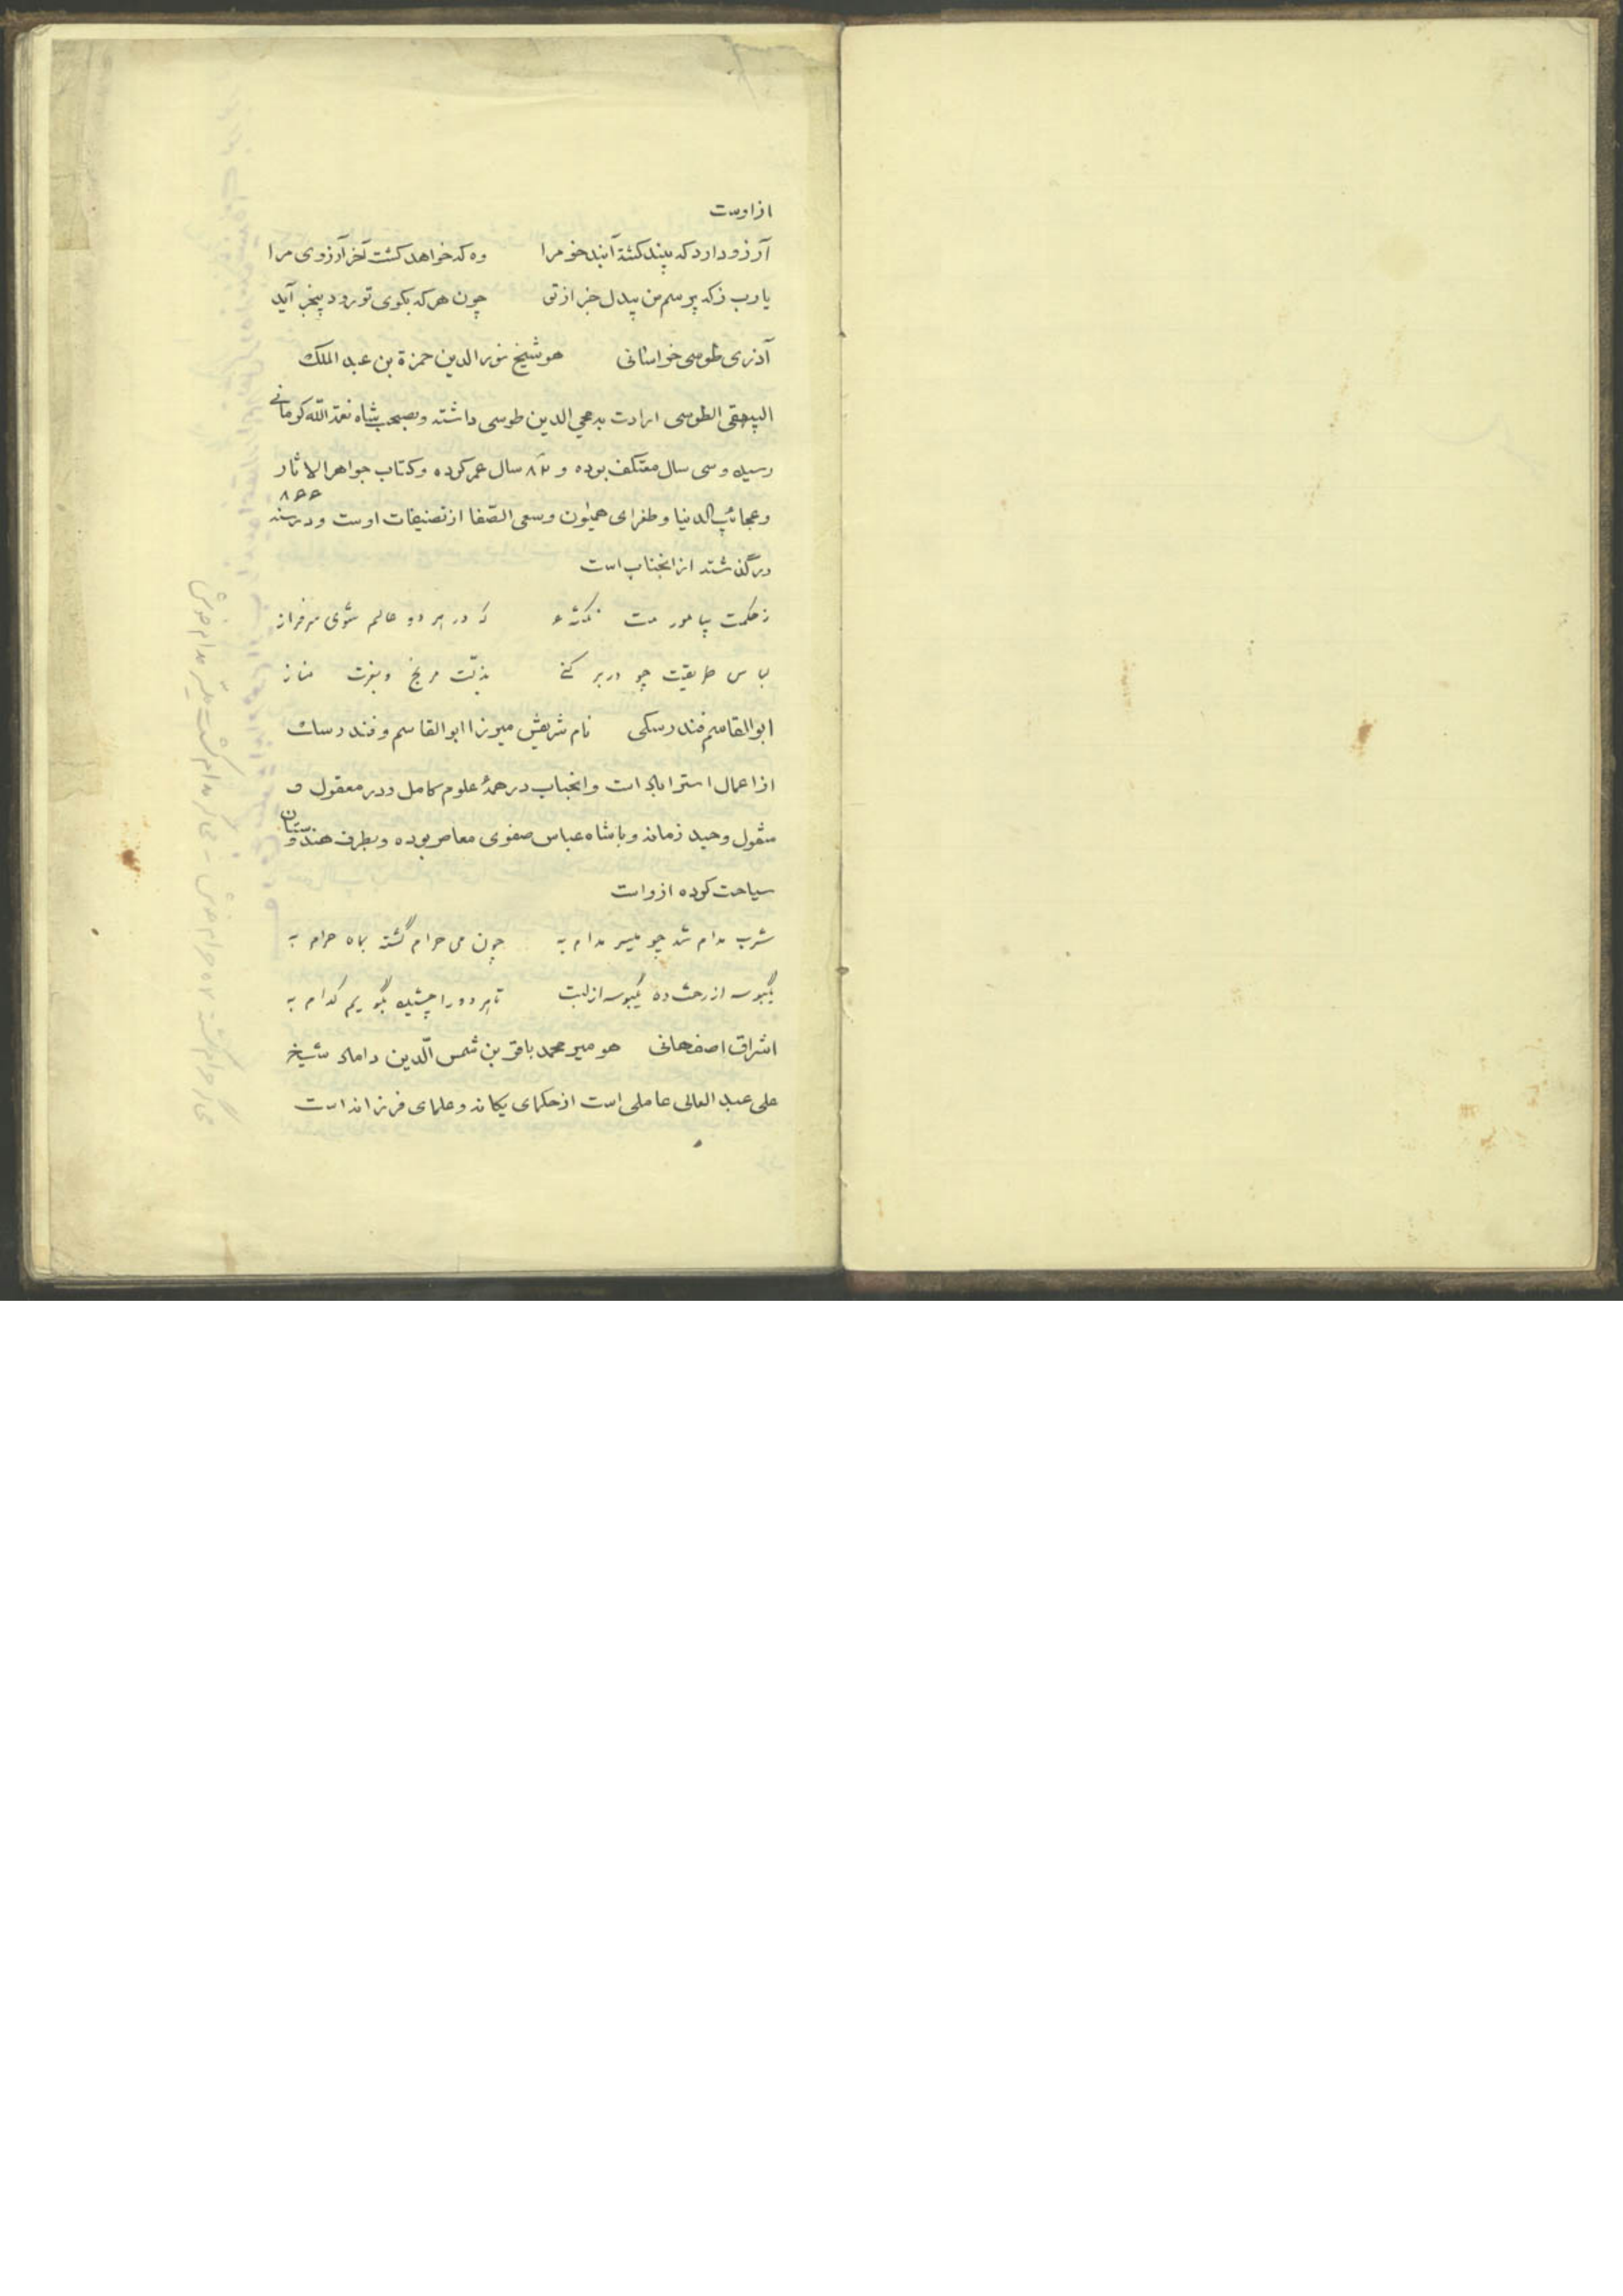 از اوست
آرزو دارد که بیند کشتهٔ آنبدخو مرا وه که خواهد کشت آخر آرزوی مرا
یا رب ز که پرسم من بیدل خبر از تو چون هر که بکوی تو رود بیخبر آید
آذری طوسی خراسانی هو شیخ نور الدین حمزة بن عبد الملک
البیهقی الطوسی ارادت به محی الدین طوسی داشته و بصحبت شاه نعمة الله کرمانی
رسیده و سی سال معتکف بوده و ۸۲ سال عمر کرده و کتاب جواهر الاثار
و عجائب الدنیا و طغرای همیون و سعی الصّفا از تصنیفات اوست و در سنه ۸۶۶
در گذشته از انجناب است
ز حکمت بیامورمت که در هر دو عالم شوی سرفراز
لباس طریقت چو در بر کنی بذلّت مرنج و بعزت مناز
ابوالقاسم فندرسکی نام شریفش میرزا ابوالقاسم و فندرسک
از اعمال استراباد است و انجناب در همهٔ علوم کامل و در معقول و
منقول وحید زمانه و با شاه عباس صفوی معاصر بوده و بطرف هندوستان
سیاحت کرده ازوست
شرب مدام شد چو میسر مدام به چون می حرام گشته بماه حرام به
یکبوسه از رخت ده یکبوسه از لبت تا هر دو را چشیده بگویم کدام به
اشراق اصفهانی هو میر محمد باقر بن شمس الّدین داماد شیخ
علی عبد العالی عاملی است از حکمای یکانه و علمای فرزانه است